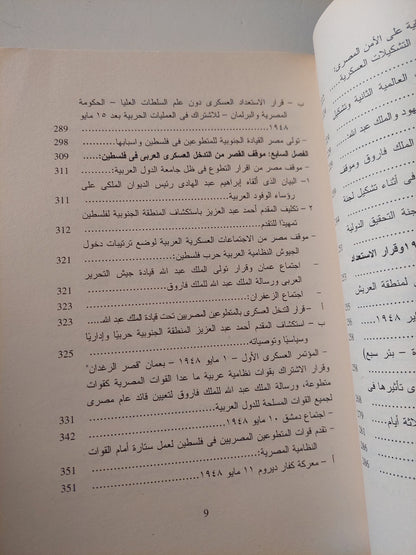 ب – قرار الاستعداد العسكرى دون علم السلطات العليا – الحكومة
المصرية والبرلمان – للاشتراك فى العمليات الحربية بعد ١٥ مايو
١٩٤٨. 289
– تولى مصر القيادة الجنوبية للمتطوعين فى فلسطين واسبابها. 307
الفصل السابع: موقف القصر من التدخل العسكرى العربى فى فلسطين: 309
– موقف مصر من اقرار التطوع فى ظل جامعة الدول العربية. 311
١– البيان الذى ألقاه إبراهيم عبد الهادى رئيس الديوان الملكى على
رؤساء الوفود العربية. 311
٢– تكليف المقدم أحمد عبد العزيز باستكشاف المنطقة الجنوبية لفلسطين
تمهيدًا للتقدم. 312
– موقف مصر من الاجتماعات العسكرية العربية لوضع ترتيبات دخول
الجيوش النظامية العربية حرب فلسطين: 321
– اجتماع عمان وقرار تولى الملك عبد الله قيادة جيش التحرير
العربى ورسالة الملك عبد الله للملك فاروق. 321
– اجتماع الزعفران: 322
أ – قرار التدخل العسكرى بالمتطوعين تحت قيادة الملك عبد الله. 323
ب – استكشاف المقدم أحمد عبد العزيز المنطقة الجنوبية حربيًا وإداريًا
وسياسيًا وتوصياته. 325
– المؤتمر العسكرى الأول – ١ مايو ١٩٤٨ – بعمان "قصر الرغدان"
وقرار الاشتراك بقوات نظامية عربية ما عدا القوات المصرية كقوات
متطوعة، ورسالة الملك عبد الله للملك فاروق لتعيين قائد عام مصرى
لجميع القوات المسلحة للدول العربية. 331
– اجتماع دمشق ١٠ مايو ١٩٤٨. 342
– تقدم قوات المتطوعين المصريين فى فلسطين لعمل ستارة أمام القوات
النظامية المصرية: 351
أ – معركة كفار ديروم ١١ مايو ١٩٤٨. 351
9
على الأمن المصرى:
التشكيلات العسكرية
العالمية الثانية وتشكيل
والملك عبد الله
الملك فاروق وموقف
فى أثناء تشكيل لجنة
لجنة التحقيق الدولية
وقرار الاستعداد
لمنطقة العريش
– بئر سبع)
تأثيرها فى